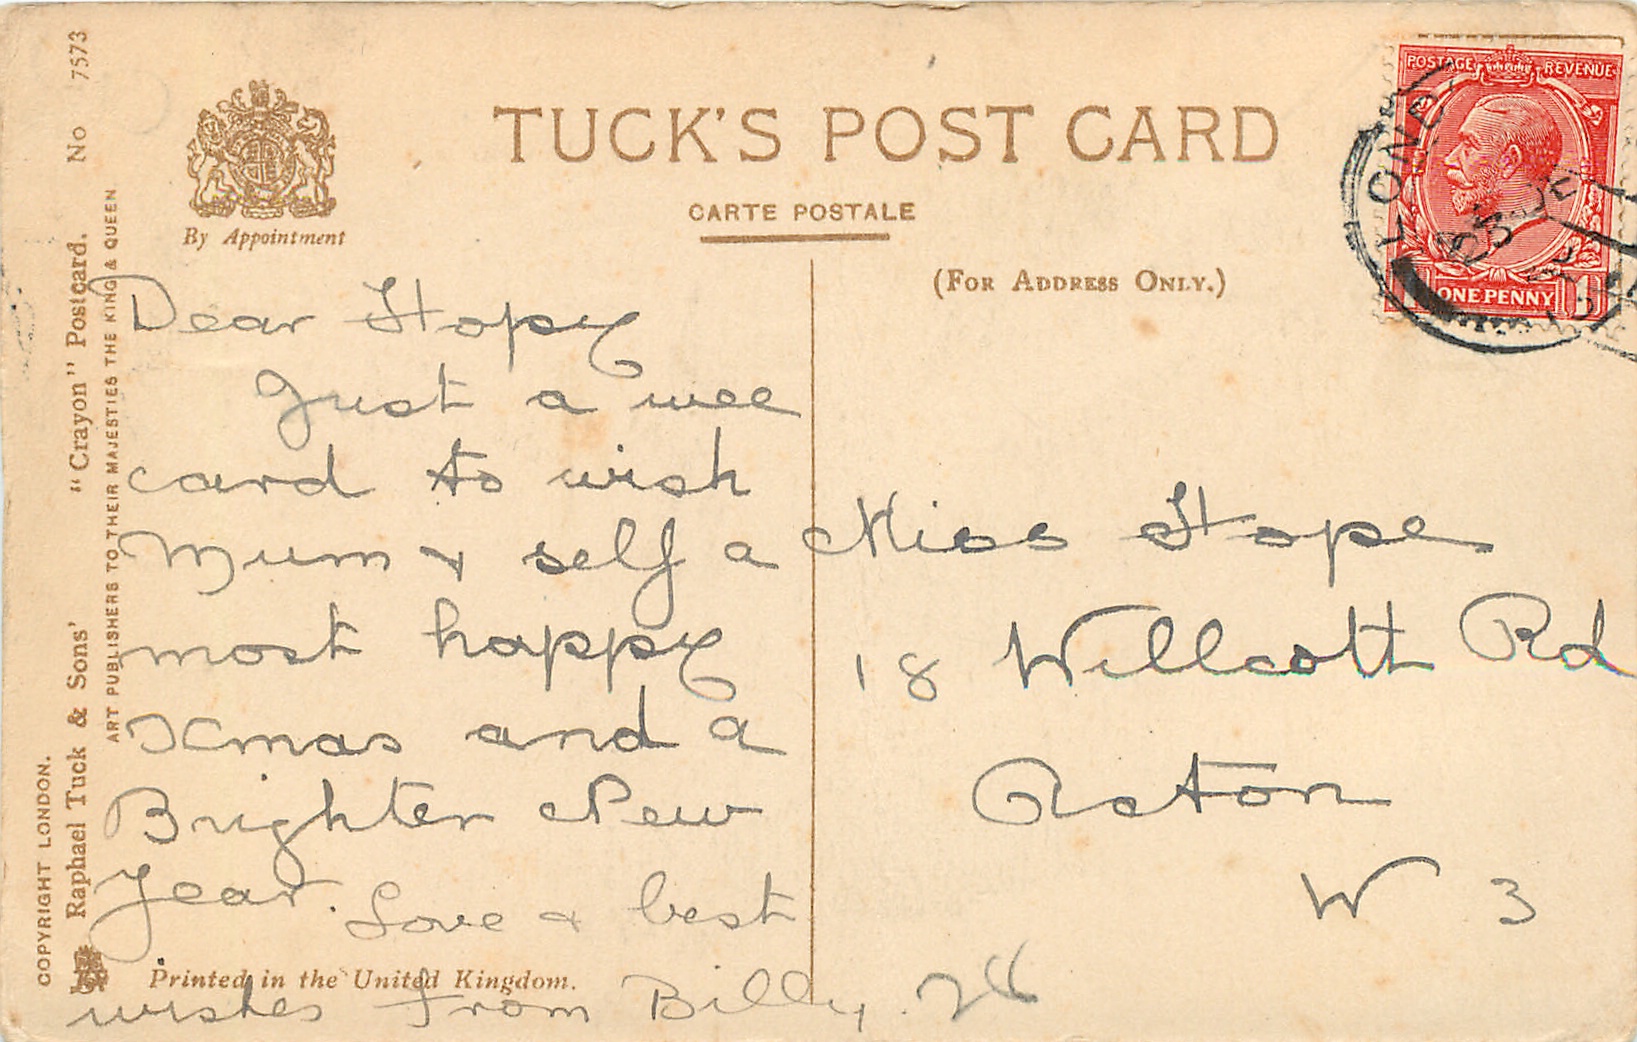 TUCK'S POST CARD
CARTE POSTALE
(FOR ADDRESS ONLY.)
By Appointment
POSTAGE REVENUE
ONE PENNY
Dear Hopy
Just a wee
card to wish
Mum & self a
most happy
Xmas and a
Brighter New
Year. Love & best
wishes from Billy.
Miss Hope
18 Willcott Rd
Acton
W 3
Printed in the United Kingdom.
COPYRIGHT LONDON.
Raphael Tuck & Sons' "Crayon" Postcard. No 7573
ART PUBLISHERS TO THEIR MAJESTIES THE KING & QUEEN